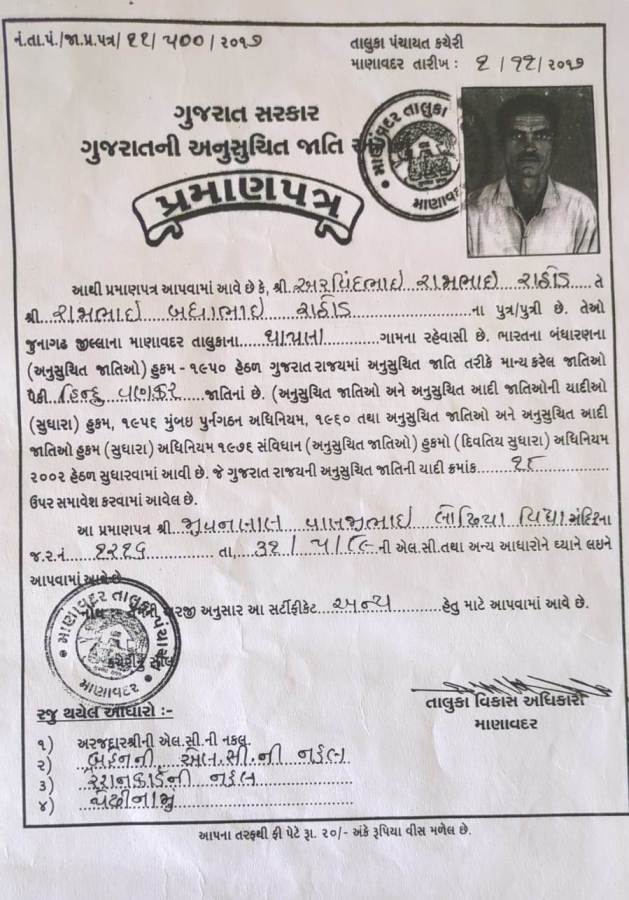 નં.તા.પં./જા.પ્ર.પત્ર/ ૨૨/૫૦૦/૨૦૧૭
તાલુકા પંચાયત કચેરી
માણાવદર તારીખ : ૨ /૧૧/૨૦૧૭
ગુજરાત સરકાર
ગુજરાતની અનુસુચિત જાતિ
માણાવદર તાલુકા
માણાવદર
પ્રમાણપત્ર
આથી પ્રમાણપત્ર આપવામાં આવે છે કે, શ્રી અરવિંદભાઇ રામભાઇ રાઠોડ તે
શ્રી રામભાઇ બઘાભાઇ રાઠોડ ના પુત્ર/પુત્રી છે. તેઓ
જુનાગઢ જીલ્લાના માણાવદર તાલુકાના ગામના રહેવાસી છે. ભારતના બંધારણના
(અનુસુચિત જાતિઓ) હુકમ - ૧૯૫૦ હેઠળ ગુજરાત રાજયમાં અનુસુચિત જાતિ તરીકે માન્ય કરેલ જાતિઓ
પૈકી હિન્દુ વણકર જાતિનાં છે. (અનુસુચિત જાતિઓ અને અનુસુચિત આદી જાતિઓની યાદીઓ
(સુધારા) હુકમ, ૧૯૫૬ મુંબઇ પુર્નગઠન અધિનિયમ, ૧૯૬૦ તથા અનુસુચિત જાતિઓ અને અનુસુચિત આદી
જાતિઓ હુકમ (સુધારા) અધિનિયમ ૧૯૭૬ સંવિધાન (અનુસુચિત જાતિઓ) હુકમો (દિવતિય સુધારા) અધિનિયમ
૨૦૦૨ હેઠળ સુધારવામાં આવી છે. જે ગુજરાત રાજયની અનુસુચિત જાતિની યાદી ક્રમાંક
ઉપર સમાવેશ કરવામાં આવેલ છે.
આ પ્રમાણપત્ર શ્રી જીવનલાલ વાલજીભાઇ લોઢિયા વિદ્યા મંદિરના
જ.ર.નં ૨૨૨૬ તા, ૩૧/૫/ ની એલ.સી.તથા અન્ય આધારોને ધ્યાને લઇને
આપવામાં આવે છે
અરજી અનુસાર આ સર્ટીફીકેટ અન્ય હેતુ માટે આપવામાં આવે છે.
માણાવદર તાલુકા પંચાયત
કચેરીનું સીલ
માણાવદર
તાલુકા વિકાસ અધિકારી
માણાવદર
રજુ થયેલ આધારો :-
૧) અરજદારશ્રીની એલ.સી.ની નકલ.
૨) બહેનની એલ.સી.ની નકલ
૩) રેશનકાર્ડની નકલ
૪) પેઢીનામુ
આપના તરફથી ફી પેટે રૂા. ૨૦/- અંકે રૂપિયા વીસ મળેલ છે.